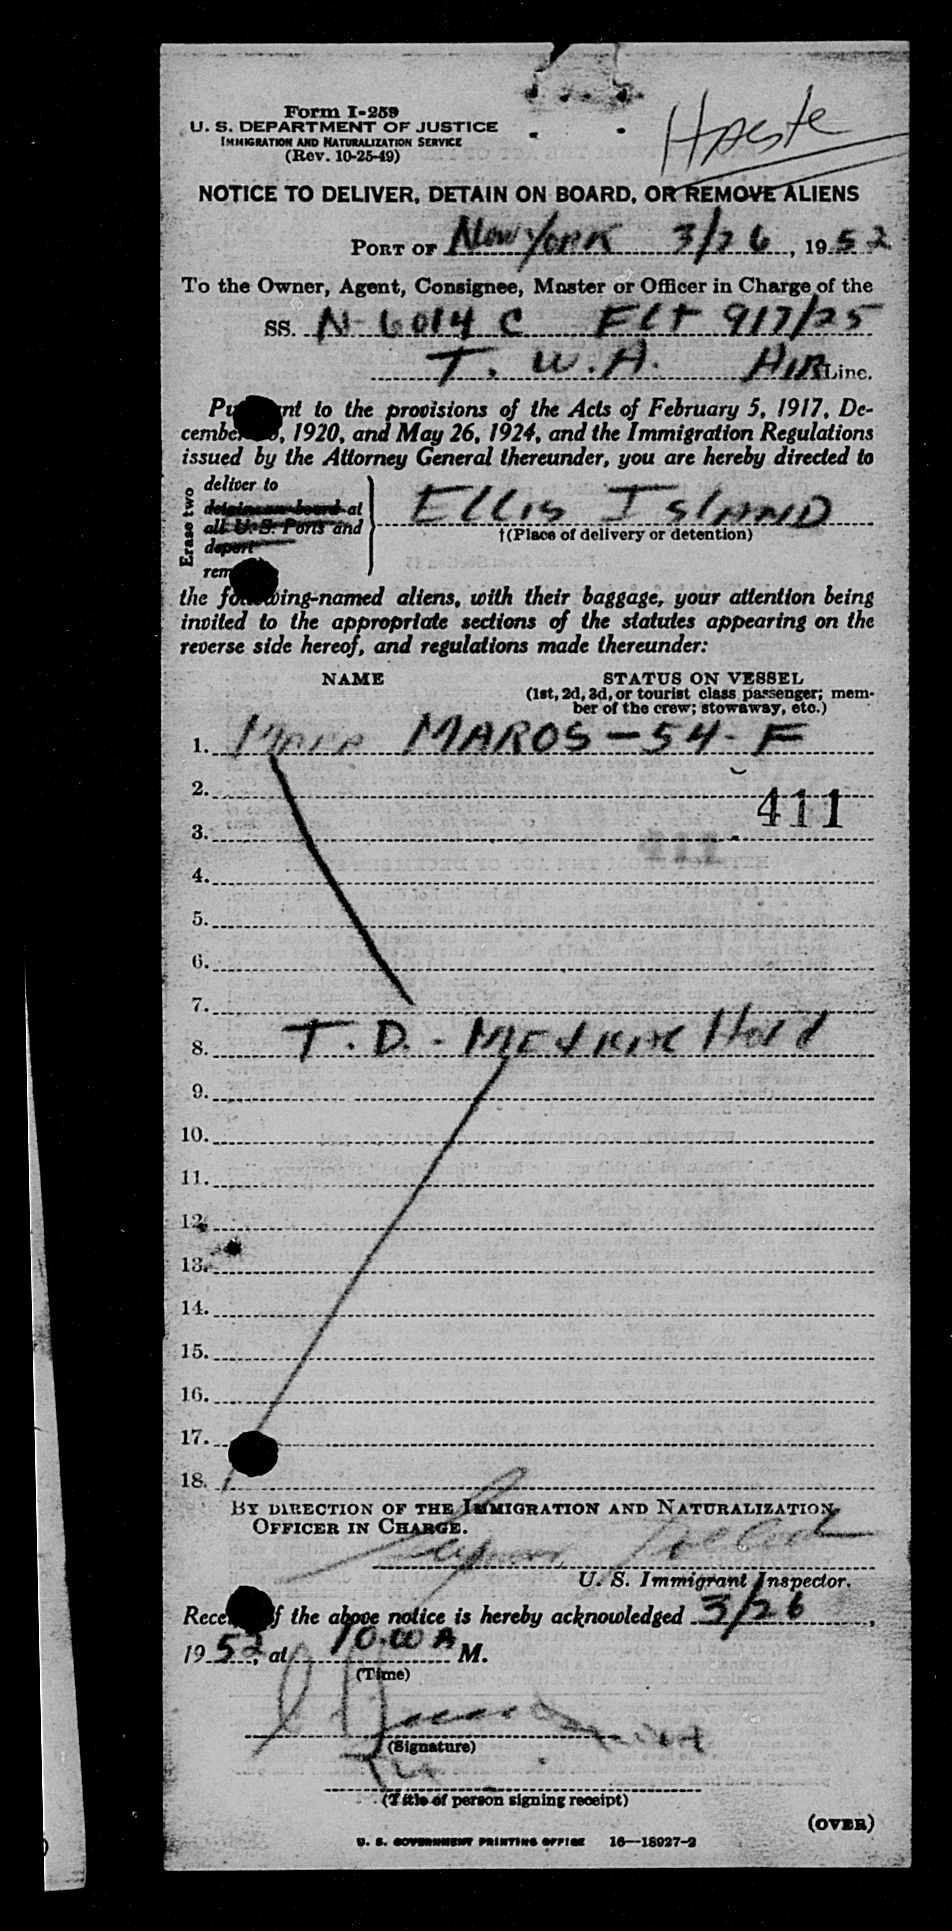 Form I-259
U. S. DEPARTMENT OF JUSTICE
IMMIGRATION AND NATURALIZATION SERVICE
(Rev. 10-25-49)
Haste
NOTICE TO DELIVER, DETAIN ON BOARD, OR REMOVE ALIENS
PORT OF New York 3/26, 1952
To the Owner, Agent, Consignee, Master or Officer in Charge of the
SS. N-6014 C FLT 917/25
T. W. A. AIR Line.
Pu nt to the provisions of the Acts of February 5, 1917, De-
cember , 1920, and May 26, 1924, and the Immigration Regulations
issued by the Attorney General thereunder, you are hereby directed to
Erase two
deliver to
detain on board at
all U. S. Ports and
deport
rem
ELLIS ISLAND
†(Place of delivery or detention)
the following-named aliens, with their baggage, your attention being
invited to the appropriate sections of the statutes appearing on the
reverse side hereof, and regulations made thereunder:
NAME STATUS ON VESSEL
(1st, 2d, 3d, or tourist class passenger; mem-
ber of the crew; stowaway, etc.)
1. MAROS - 54 - F
2.
411
3.
4.
5.
6.
7.
8. T. D. - Medical Hold
9.
10.
11.
12.
13.
14.
15.
16.
17.
18.
BY DIRECTION OF THE IMMIGRATION AND NATURALIZATION
OFFICER IN CHARGE.
U. S. Immigrant Inspector.
Rece f the above notice is hereby acknowledged 3/26,
1952, at 10:00 A M.
(Time)
(Signature)
(Title of person signing receipt)
(OVER)
U. S. GOVERNMENT PRINTING OFFICE 16—18927-2